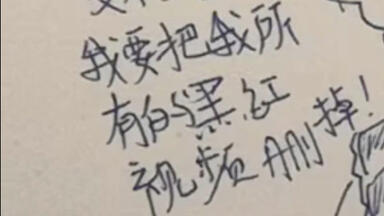 我要把我所
有的黑红
视频删掉！